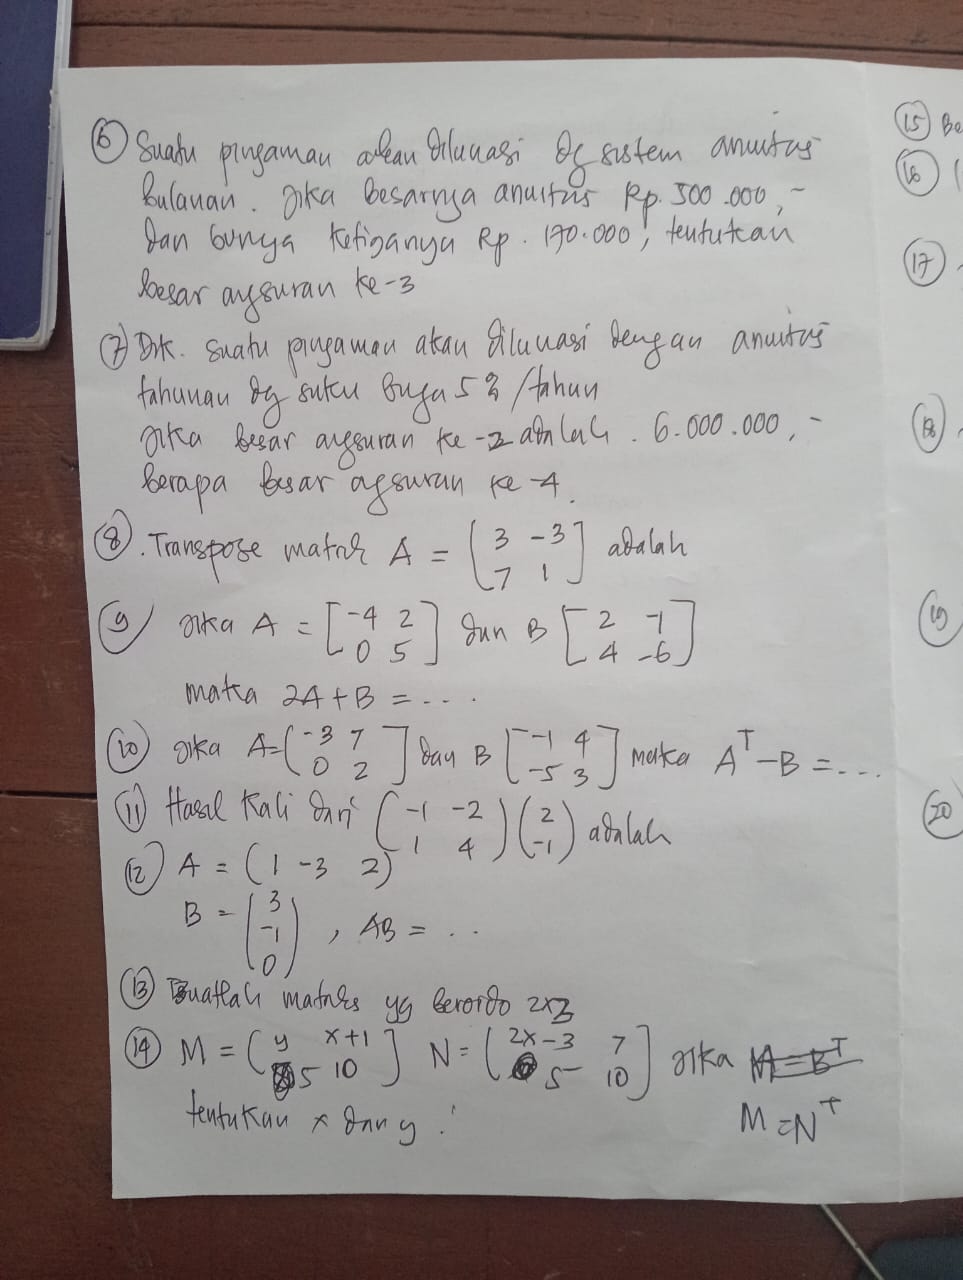 ⑥ Suatu pinjaman akan dilunasi dg sistem anuitas
bulanan. Jika besarnya anuitas Rp. 500.000,-
dan bunga ketiganya Rp. 170.000, tentukan
besar angsuran ke-3
⑦ Dik. Suatu pinjaman akan dilunasi dengan anuitas
tahunan dg suku bunga 5% /tahun
Jika besar angsuran ke-2 adalah. 6.000.000,-
berapa besar angsuran ke-4.
⑧. Transpose matrik A = ( 3 -3 ] adalah
7 1
⑨ Jika A = [ -4 2 ] dan B [ 2 -1 ]
0 5 4 -6
maka 2A + B = ....
⑩ Jika A = ( -3 7 ] dan B [ -1 4 ] maka Aᵀ - B = ....
0 2 -5 3
⑪ Hasil kali dari ( -1 -2 ) ( 2 ) adalah
1 4 -1
⑫ A = ( 1 -3 2 )
B = ( 3
-1 ) , AB = ...
0
⑬ Buatlah matriks yg berordo 2x3
⑭ M = ( y x+1 ] N = ( 2x-3 7 ] Jika
5 10 5 10
tentukan x dan y! M = Nᵀ
⑮ Be
⑯ (
⑰
⑱
⑲
⑳